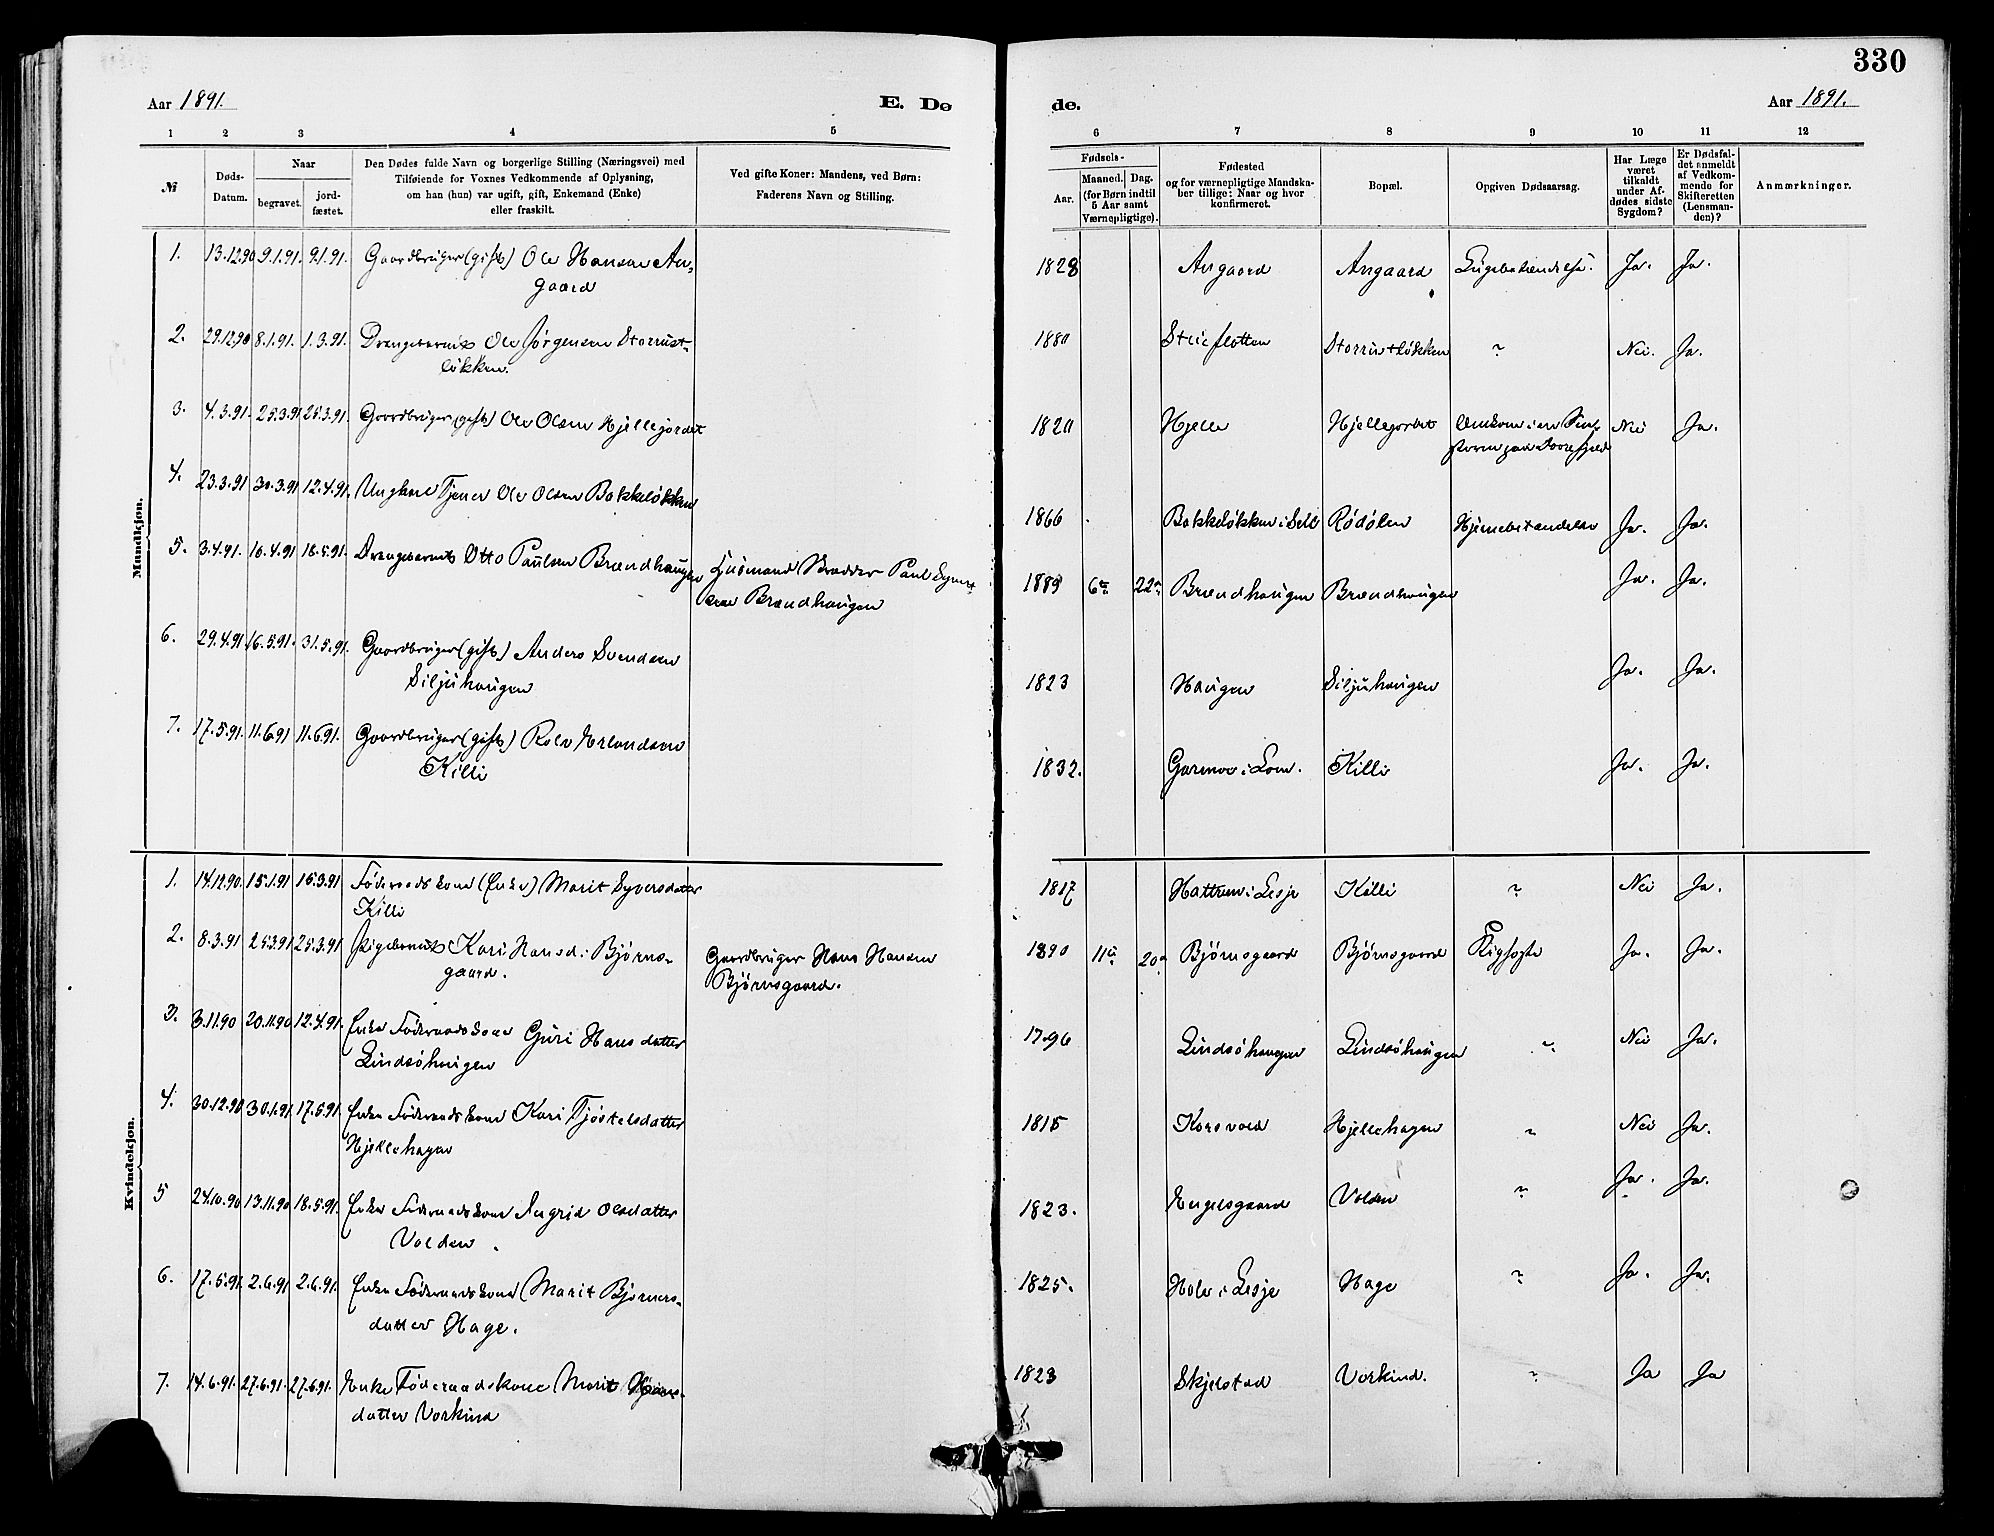 330
Aar 1891.
E. Dø
de.
Aar 1891.
1 2 3 4 5
6 7 8 9 10 11 12
№
Døds-
Datum.
Naar
begravet.
jord-
fæstet.
Den Dødes fulde Navn og borgerlige Stilling (Næringsvei) med
Tilføiende for Voxnes Vedkommende af Oplysning,
om han (hun) var ugift, gift, Enkemand (Enke)
eller fraskilt.
Ved gifte Koner: Mandens, ved Børn:
Faderens Navn og Stilling.
Fødsels-
Aar.
Maaned. Dag.
(for Børn indtil
5 Aar samt
Værnepligtige).
Fødested
og for værnepligtige Mandska-
ber tillige: Naar og hvor
konfirmeret.
Bopæl.
Opgiven Dødsaarsag.
Har Læge
været
tilkaldt
under Af-
dødes sidste
Sygdom?
Er Dødsfal-
det anmeldt
af Vedkom-
mende for
Skifteretten
(Lensman-
den)?
Anmærkninger.
Mandkjøn.
1. 13.12.90 9.1.91. 9.1.91. Gaardbruger (gift) Ole Hansen An-
gaard
1828 Angaard Angaard Ja. Ja.
2. 29.12.90 8.1.91. 1.3.91. Drengebarnet Ole Jørgensen Storrust-
løkken.
1880 Storrustløkken " Nei. Ja.
3. 4.3.91. 25.3.91 25.3.91. Gaardbruger (gift) Ole Olsen Hjellejordet
1820 Hjelle Hjellejordet Omkom i en
paa Dovrefjeld
Nei Ja.
4. 23.3.91 30.3.91 12.4.91. Ungkarl Tjener Ole Olsen Bakkeløkken
1866 Bakkeløkken i Sell Rødølen Hjernebetændelse Ja. Ja.
5. 3.4.91. 16.4.91 18.5.91. Drengebarnet Otto Paulsen Brændhaugen
Husmand Skrædder Paul Syvert-
sen Brændhaugen
1889 6 22 Brændhaugen Brændhaugen Ja. Ja.
6. 29.4.91. 16.5.91. 31.5.91. Gaardbruger (gift) Anders Svendsen
Siljuhaugen
1823 Haugen Siljuhaugen Ja. Ja.
7. 17.5.91. 11.6.91 11.6.91. Gaardbruger (gift) Rolv Erlandsen
Killi
1832. Garmo i Lom. Killi Ja. Ja.
Kvindekjøn.
1. 14.12.90. 15.1.91 15.3.91 Føderaadskone (Enke) Marit Syversdatter
Killi
1817 Hattrem i Lesje Killi " Nei Ja.
2. 8.3.91 25.3.91 25.3.91. Pigebarnet Kari Hansd: Bjørns-
gaard.
Gaardbruger Hans Hansen
Bjørnsgaard.
1890 11 20 Bjørnsgaard Bjørnsgaard Kighoste Ja. Ja.
3. 3.11.90 20.11.90 12.4.91. Enke Føderaadskone Guri Hansdatter
Lindsøhaugen
1796 Lindsøhaugen Lindsøhaugen " Nei Ja.
4. 30.12.90 30.1.91 17.5.91 Enke Føderaadskone Kari Tjøstelsdatter
Hjellehagen
1815 Korsvold Hjellehagen " Nei Ja.
5 24.10.90 13.11.90 18.5.91. Enke Føderaadskone Ingrid Olsdatter
Volden.
1823. Engelsgaard Volden " Ja. Ja.
6. 17.5.91. 2.6.91 2.6.91. Enke Føderaadskone Marit Bjørners-
datter Hage.
1825. Hole i Lesje Hage " Ja. Ja.
7. 14.6.91. 27.6.91. 27.6.91. Enke Føderaadskone Marit
datter Vorkind
1823 Skjelstad Vorkind. " Ja Ja